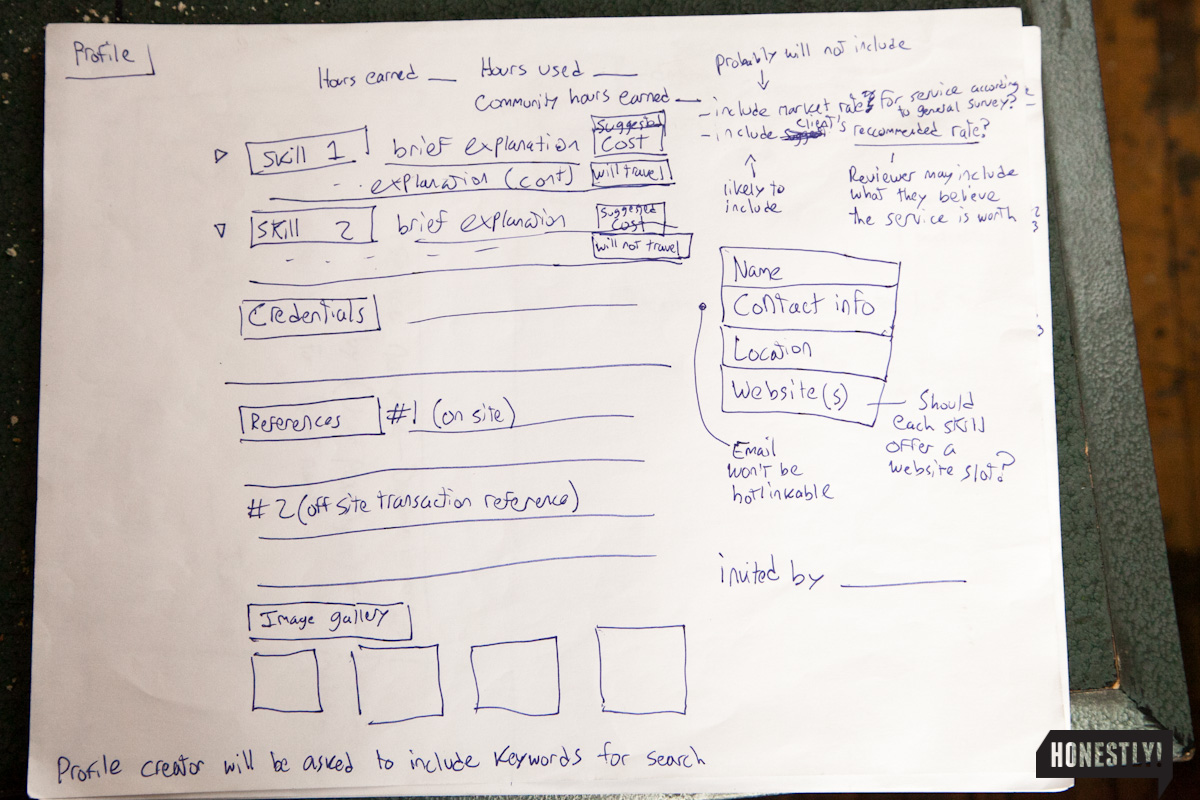 Profile
Hours earned __ Hours used __
Community hours earned __
Probably will not include
- include market rate for service according
to general survey?
- include client's reccommended rate?
likely to
include
Reviewer may include
what they believe
the service is worth
Skill 1 brief explanation
explanation (cont)
Suggested
Cost
will travel
Skill 2 brief explanation
Suggested
Cost
will not travel
Credentials
References #1 (on site)
#2 (off site transaction reference)
Image gallery
Name
Contact info
Location
Website(s)
Should
each skill
offer a
website slot?
Email
won't be
hotlinkable
invited by ______
Profile creator will be asked to include keywords for search
HONESTLY!